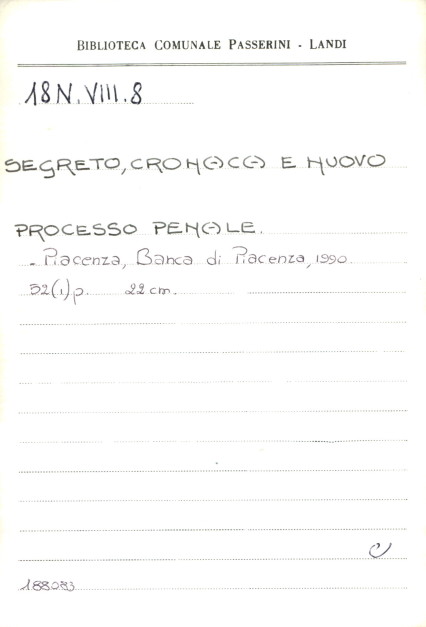 BIBLIOTECA COMUNALE PASSERINI - LANDI
18N.VIII.8
SEGRETO, CRONACA E NUOVO
PROCESSO PENALE.
- Piacenza, Banca di Piacenza, 1990.
52(1)p. 22 cm.
188083